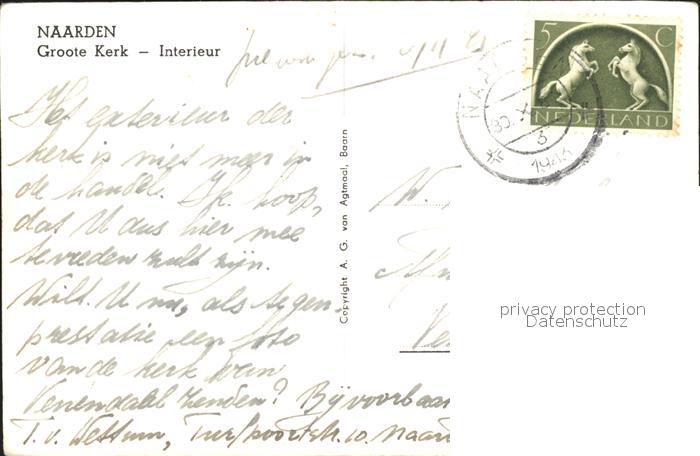 NAARDEN
Groote Kerk – Interieur
Het exterieur der
kerk is niet meer in
de handel. Ik hoop,
dat U dus hier mee
tevreden zult zijn.
Wilt U nu, als tegen-
prestatie een foto
van de kerk van
Veenendaal zenden? Bijvoorbaa
T. v. Wettum, Turfpoortstr. 10. Naar
Copyright A. G. van Agtmaal, Baarn
W.
Ve
5 C
NEDERLAND
NAA
30. X
6
1943
privacy protection
Datenschutz